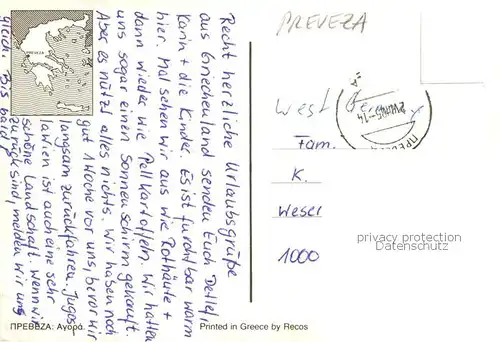 Recht herzliche Urlaubsgrüße
aus Griechenland senden Euch Detlef,
Karin + die Kinder. Es ist furchtbar warm
hier. Mal sehen wir aus wie Rothäute +
dann wieder wie Pellkartoffeln. Wir hatten
uns sogar einen Sonnenschirm gekauft.
Aber es nützt alles nichts. Wir haben noch
gut 1 Woche vor uns, bevor wir
langsam zurückfahren. Jugos-
lawien ist auch eine sehr
schöne Landschaft. Wenn wir
zurück sind, melden wir uns
gleich. Bis bald!
ΠΡΕΒΕΖΑ
ΠΡΕΒΕΖΑ: Αγορά.
Printed in Greece by Recos
PREVEZA
West Germany
Fam.
K.
Weser
1000
privacy protection